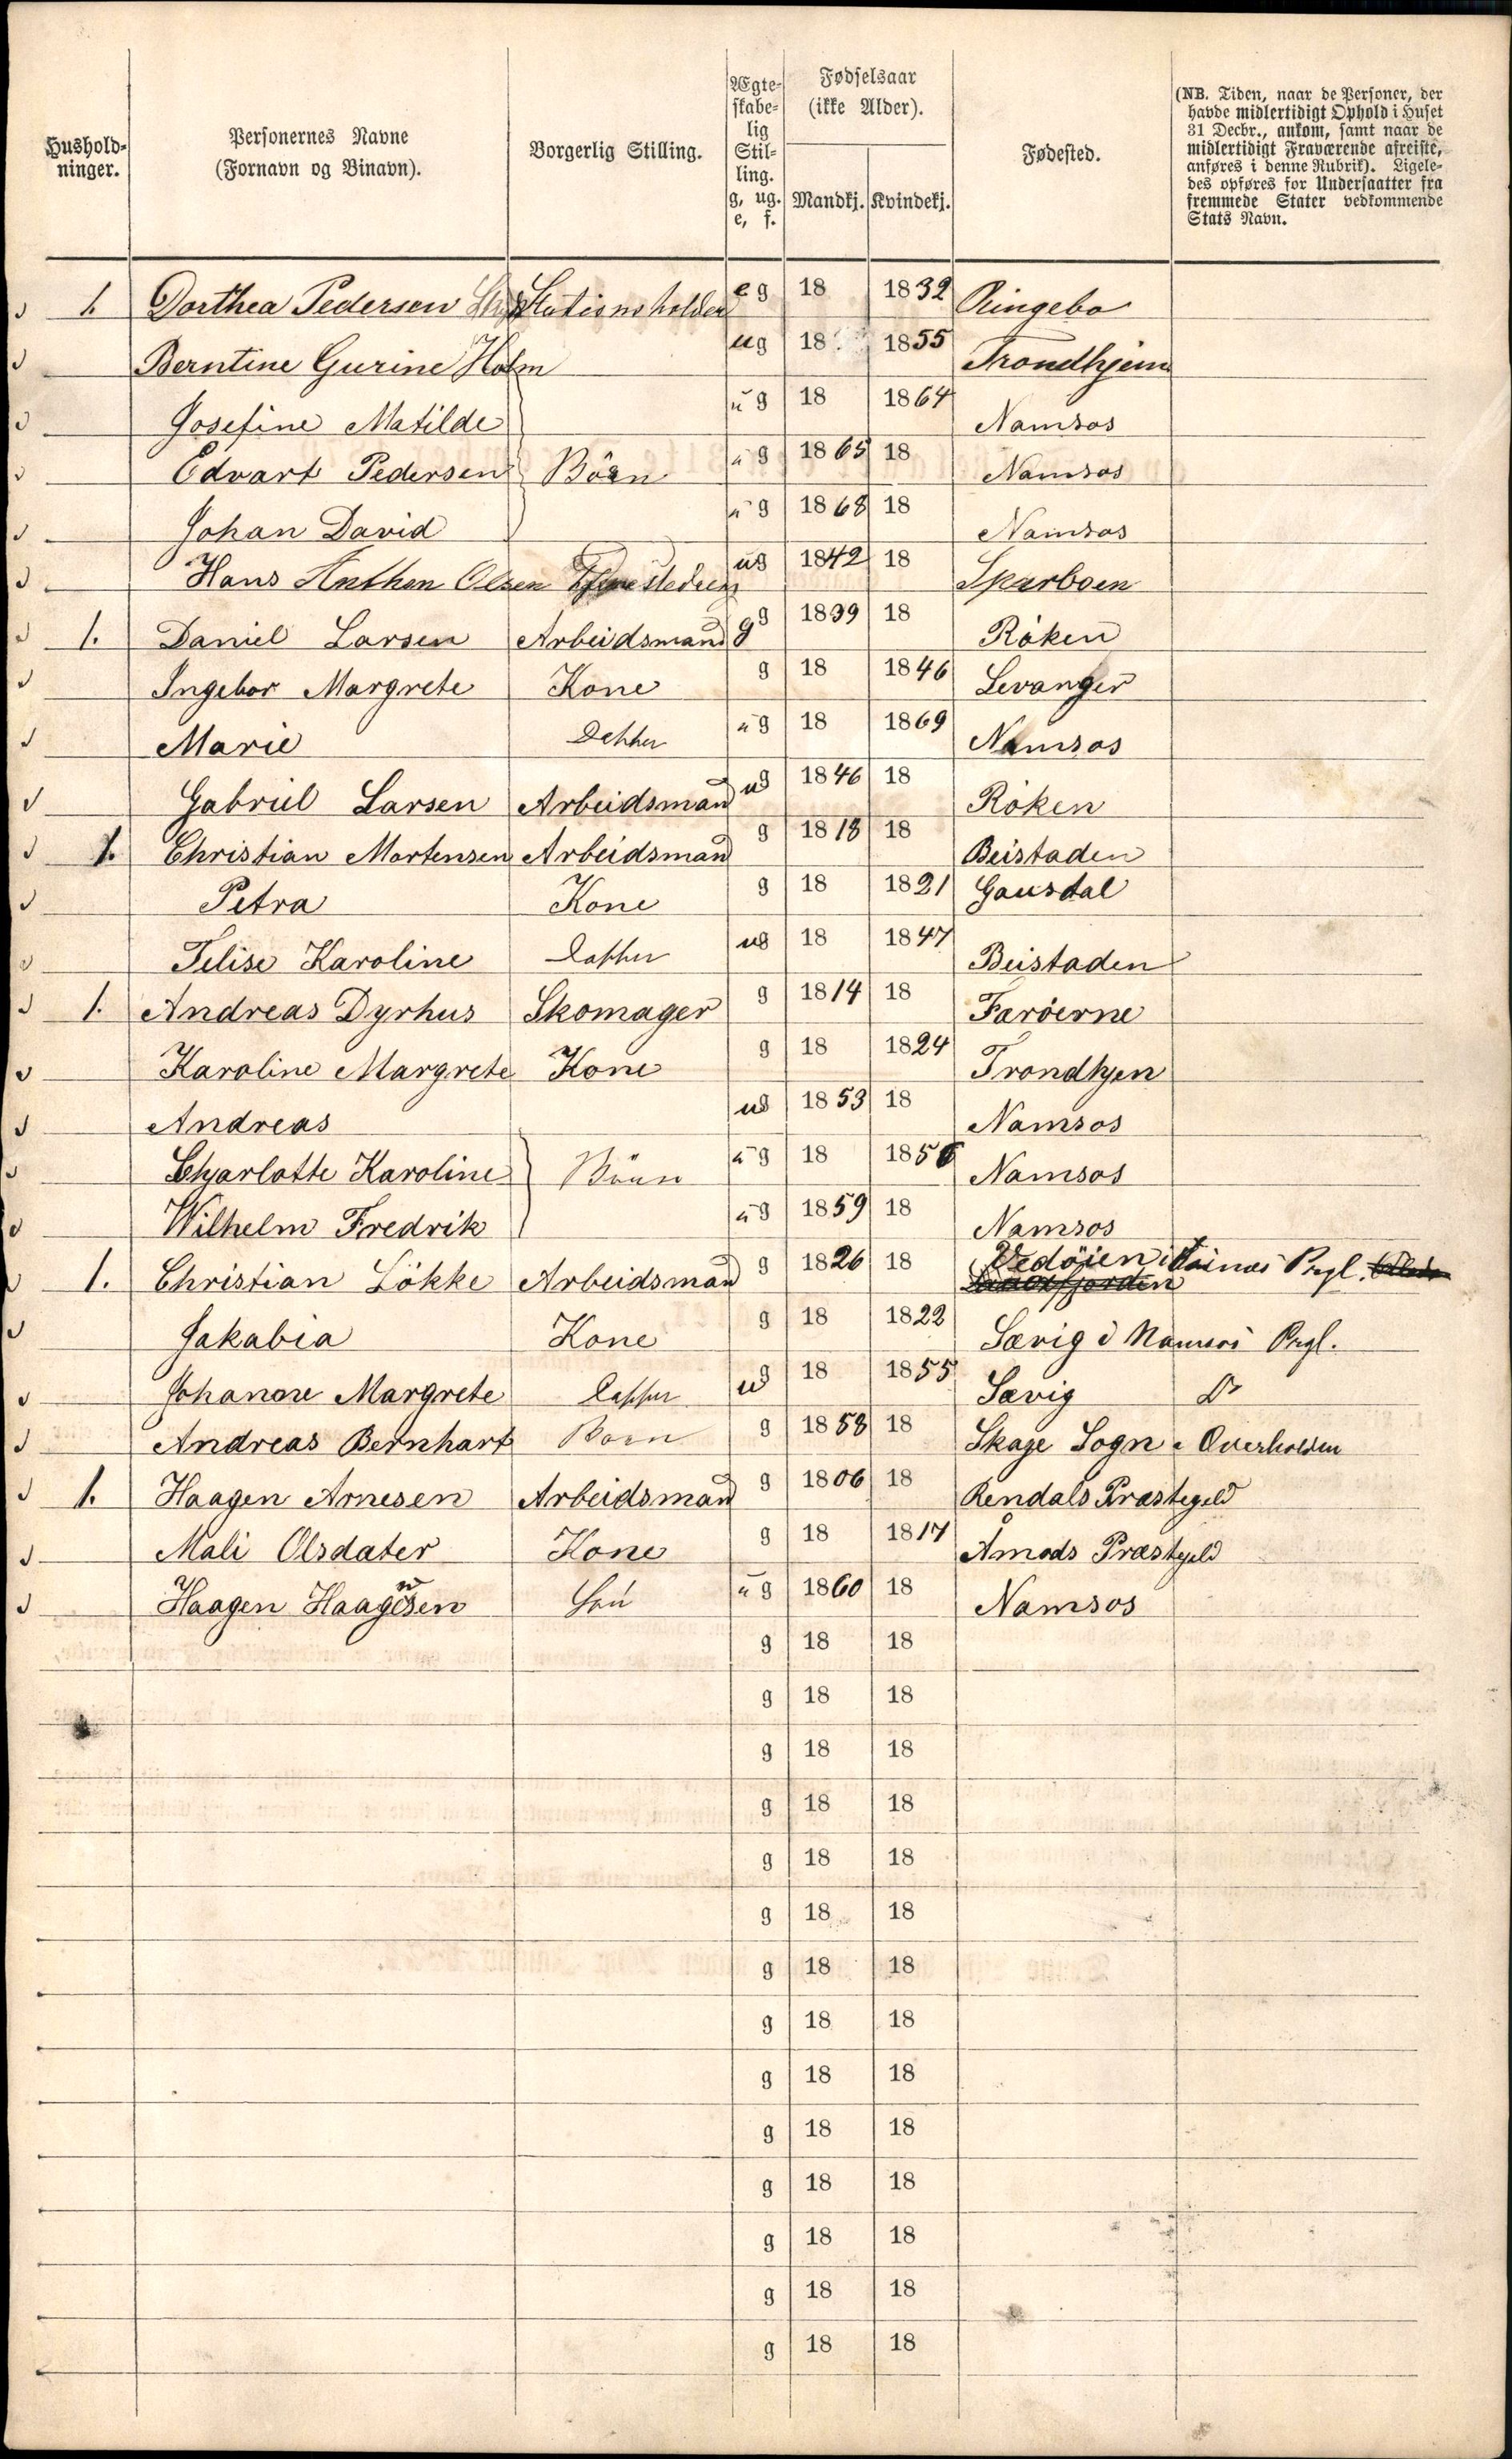 Hushold-
ninger.
Personernes Navne
(Fornavn og Binavn).
Borgerlig Stilling.
Ægte-
skabe-
lig
Stil-
ling.
g, ug.
e, f.
Fødselsaar
(ikke Alder).
Mandkj. Kvindekj.
Fødested.
(NB. Tiden, naar de Personer, der
havde midlertidigt Ophold i Huset
31 Decbr., ankom, samt naar de
midlertidigt Fraværende afreiste,
anføres i denne Rubrik). Ligele-
des opføres for Undersaatter fra
fremmede Stater vedkommende
Stats Navn.
1. Dorthea Pedersen Stationsholder e g 18 1832 Ringebo
Berntine Gurine Holm ug 18 1855 Trondhjem
Josefine Matilde ug 18 1864 Namsos
Edvart Pedersen Börn ug 1865 18 Namsos
Johan David ug 1868 18 Namsos
Hans Anthon Olsen ug 1842 18 Sparboen
1. Daniel Larsen Arbeidsmand g g 1839 18 Röken
Ingebor Margrete Kone g 18 1846 Levanger
Marie Datter ug 18 1869 Namsos
Gabriel Larsen Arbeidsmand ug 1846 18 Röken
1. Christian Mortensen Arbeidsmand g 1818 18 Beistaden
Petra Kone g 18 1821 Gausdal
Telise Karoline Datter ug 18 1847 Beistaden
1. Andreas Dyrhus Skomager g 1814 18 Faröerne
Karoline Margrete Kone g 18 1824 Trondhjen
Andreas ug 1853 18 Namsos
Chjarlotte Karoline Börn ug 18 1856 Namsos
Wilhelm Fredrik ug 1859 18 Namsos
1. Christian Lökke Arbeidsmand g 1826 18 Vedöien i Prgl.
Jakabia Kone g 18 1822 Sævig i Namsos Prgl.
Johanne Margrete Datter ug 18 1855 Sævig Do
Andreas Bernhart Barn g 1858 18 Skage Sogn i Overhalden
1. Haagen Arnesen Arbeidsmand g 1806 18 Rendals Præstegeld
Mali Olsdater Kone g 18 1817 Åmods Præstgeld
Haagen Haagesen Sön ug 1860 18 Namsos
g 18 18
g 18 18
g 18 18
g 18 18
g 18 18
g 18 18
g 18 18
g 18 18
g 18 18
g 18 18
g 18 18
g 18 18
g 18 18
g 18 18